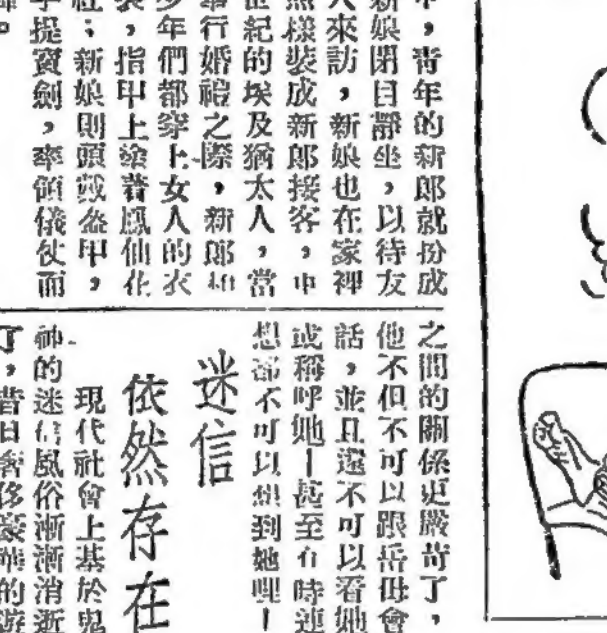 ，青年的新郎就扮成
新娘閉目靜坐，以待友
人來訪，新娘也在家裡
照樣裝成新郎接客，中
世紀的埃及猶太人，當
舉行婚禮之際，新郎和
少年們都穿上女人的衣
裝，指甲上塗着鳳仙花
紅；新娘則頭戴盔甲，
手提寶劍，率領儀仗而
之間的關係更嚴苛了，
他不但不可以跟岳母會
話，並且還不可以看她
或稱呼她—甚至有時連
想都不可以想到她哩—
迷信
依然存在
現代社會上基於鬼
神的迷信風俗漸漸消逝
了，昔日奢侈豪華的遊